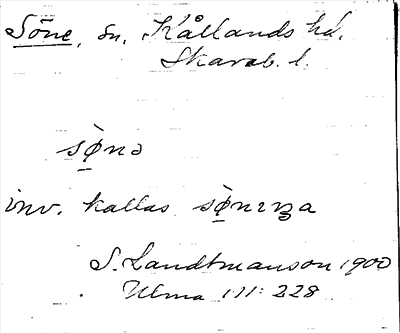 Söne, sn. Kållands hd.
Skarab. l.
sø̀nə
inv. kallas sø̀nɪŋa
S. Landtmanson 1900
Ulma 111: 228